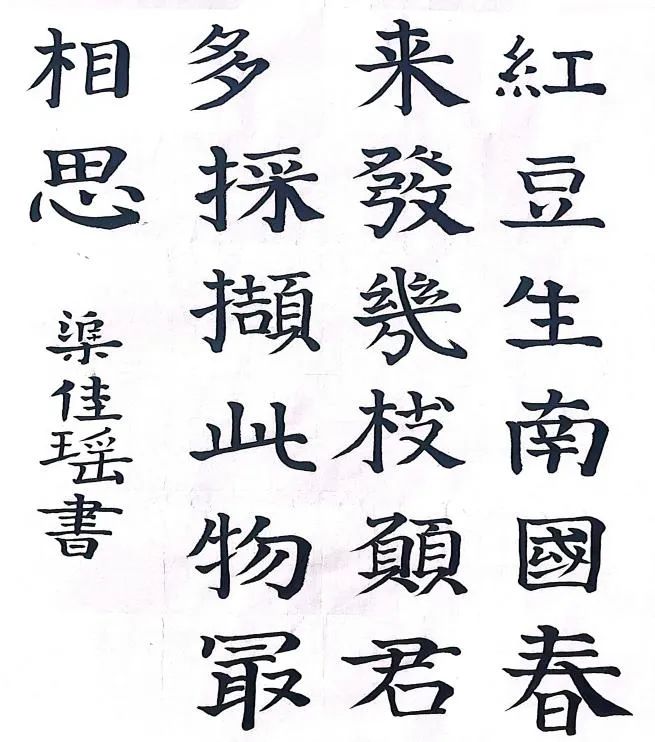 紅豆生南國春
来發幾枝願君
多採擷此物最
相思
渠佳瑶書